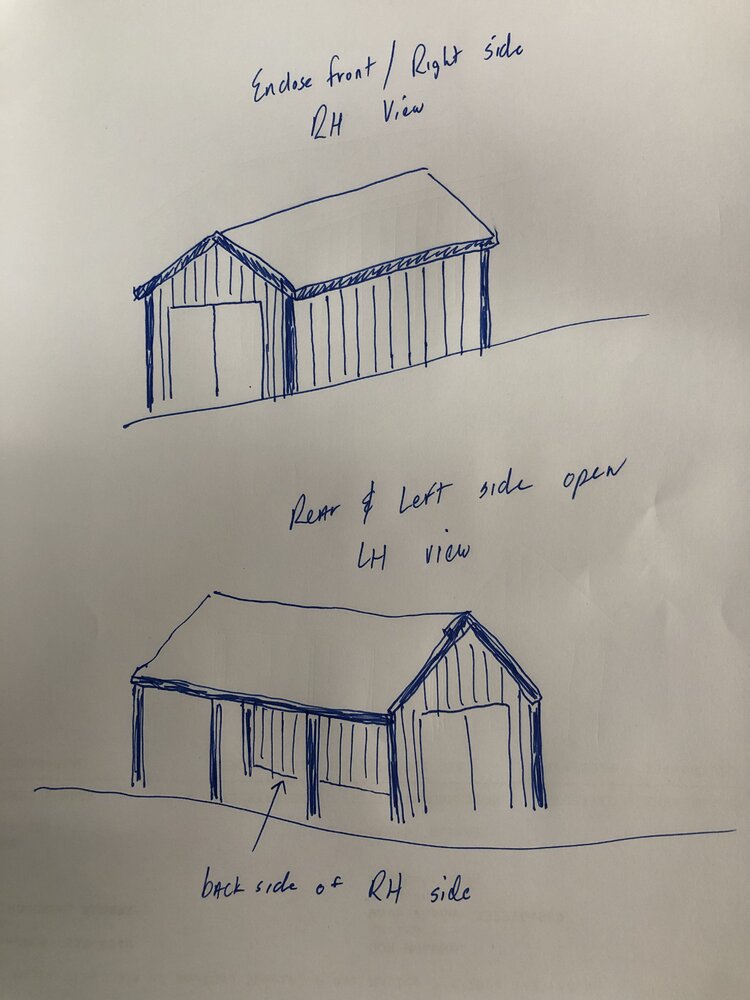 Enclose front / Right side
RH View
Rear & Left side open
LH view
back side of RH side